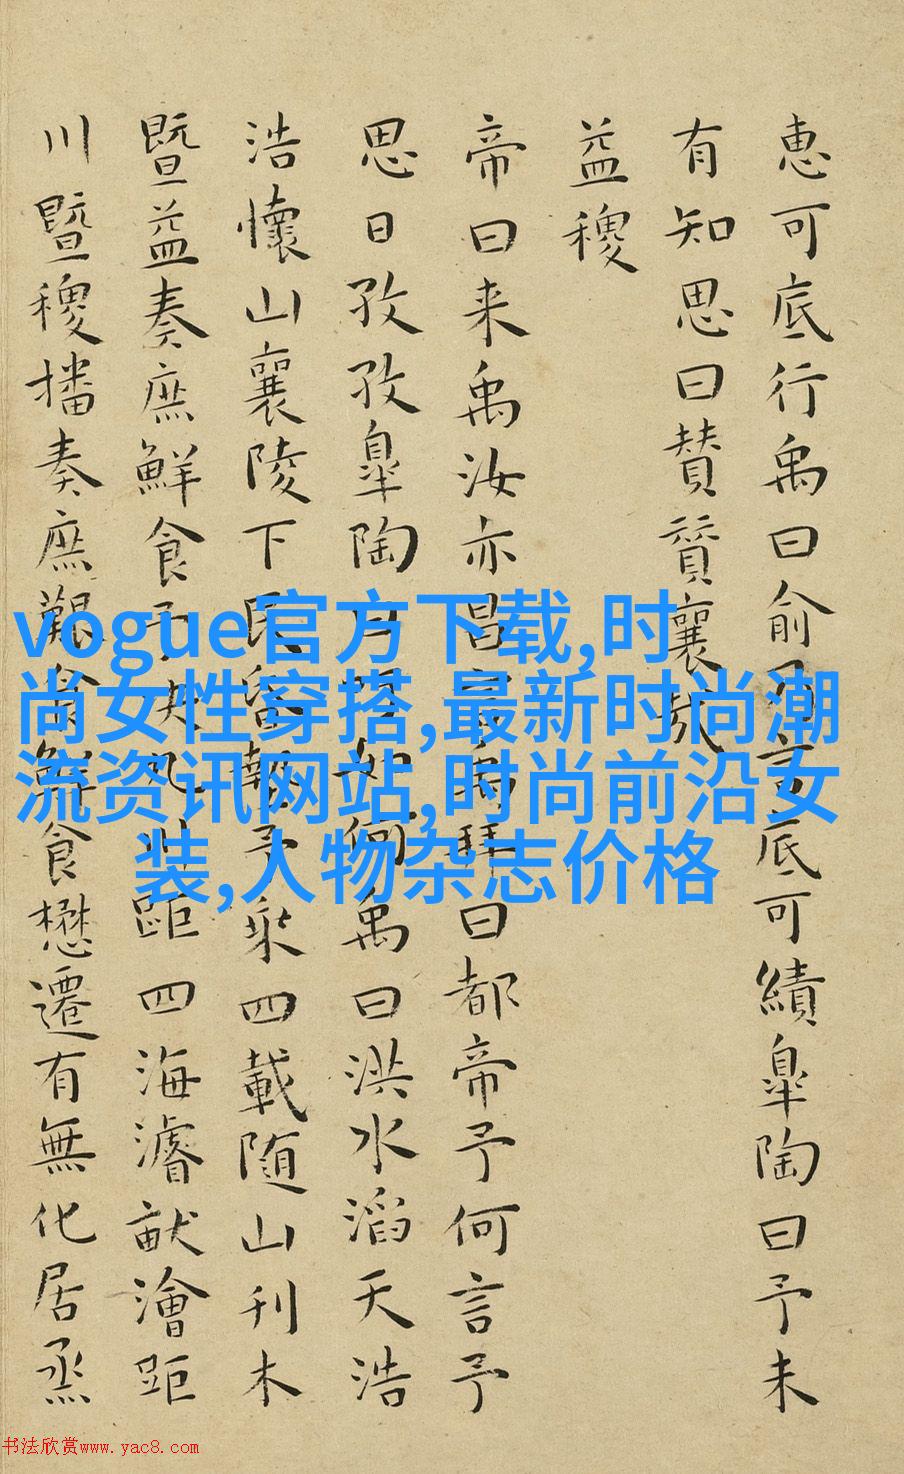 惠可底行禹曰俞乃言底可績皐陶曰予未
有知思曰賛賛襄哉
益稷
帝曰来禹汝亦昌言禹拜曰都帝予何言予
思日孜孜皐陶曰吁如何禹曰洪水滔天浩
浩懷山襄陵下民昏墊予乘四載随山刊木
暨益奏庶鮮食予決九川距四海濬畎澮距
川暨稷播奏庶艱食鮮食懋遷有無化居烝
vogue官方下载,时
尚女性穿搭,最新时尚潮
流资讯网站,时尚前沿女
装,人物杂志价格
书法欣赏www.yac8.com